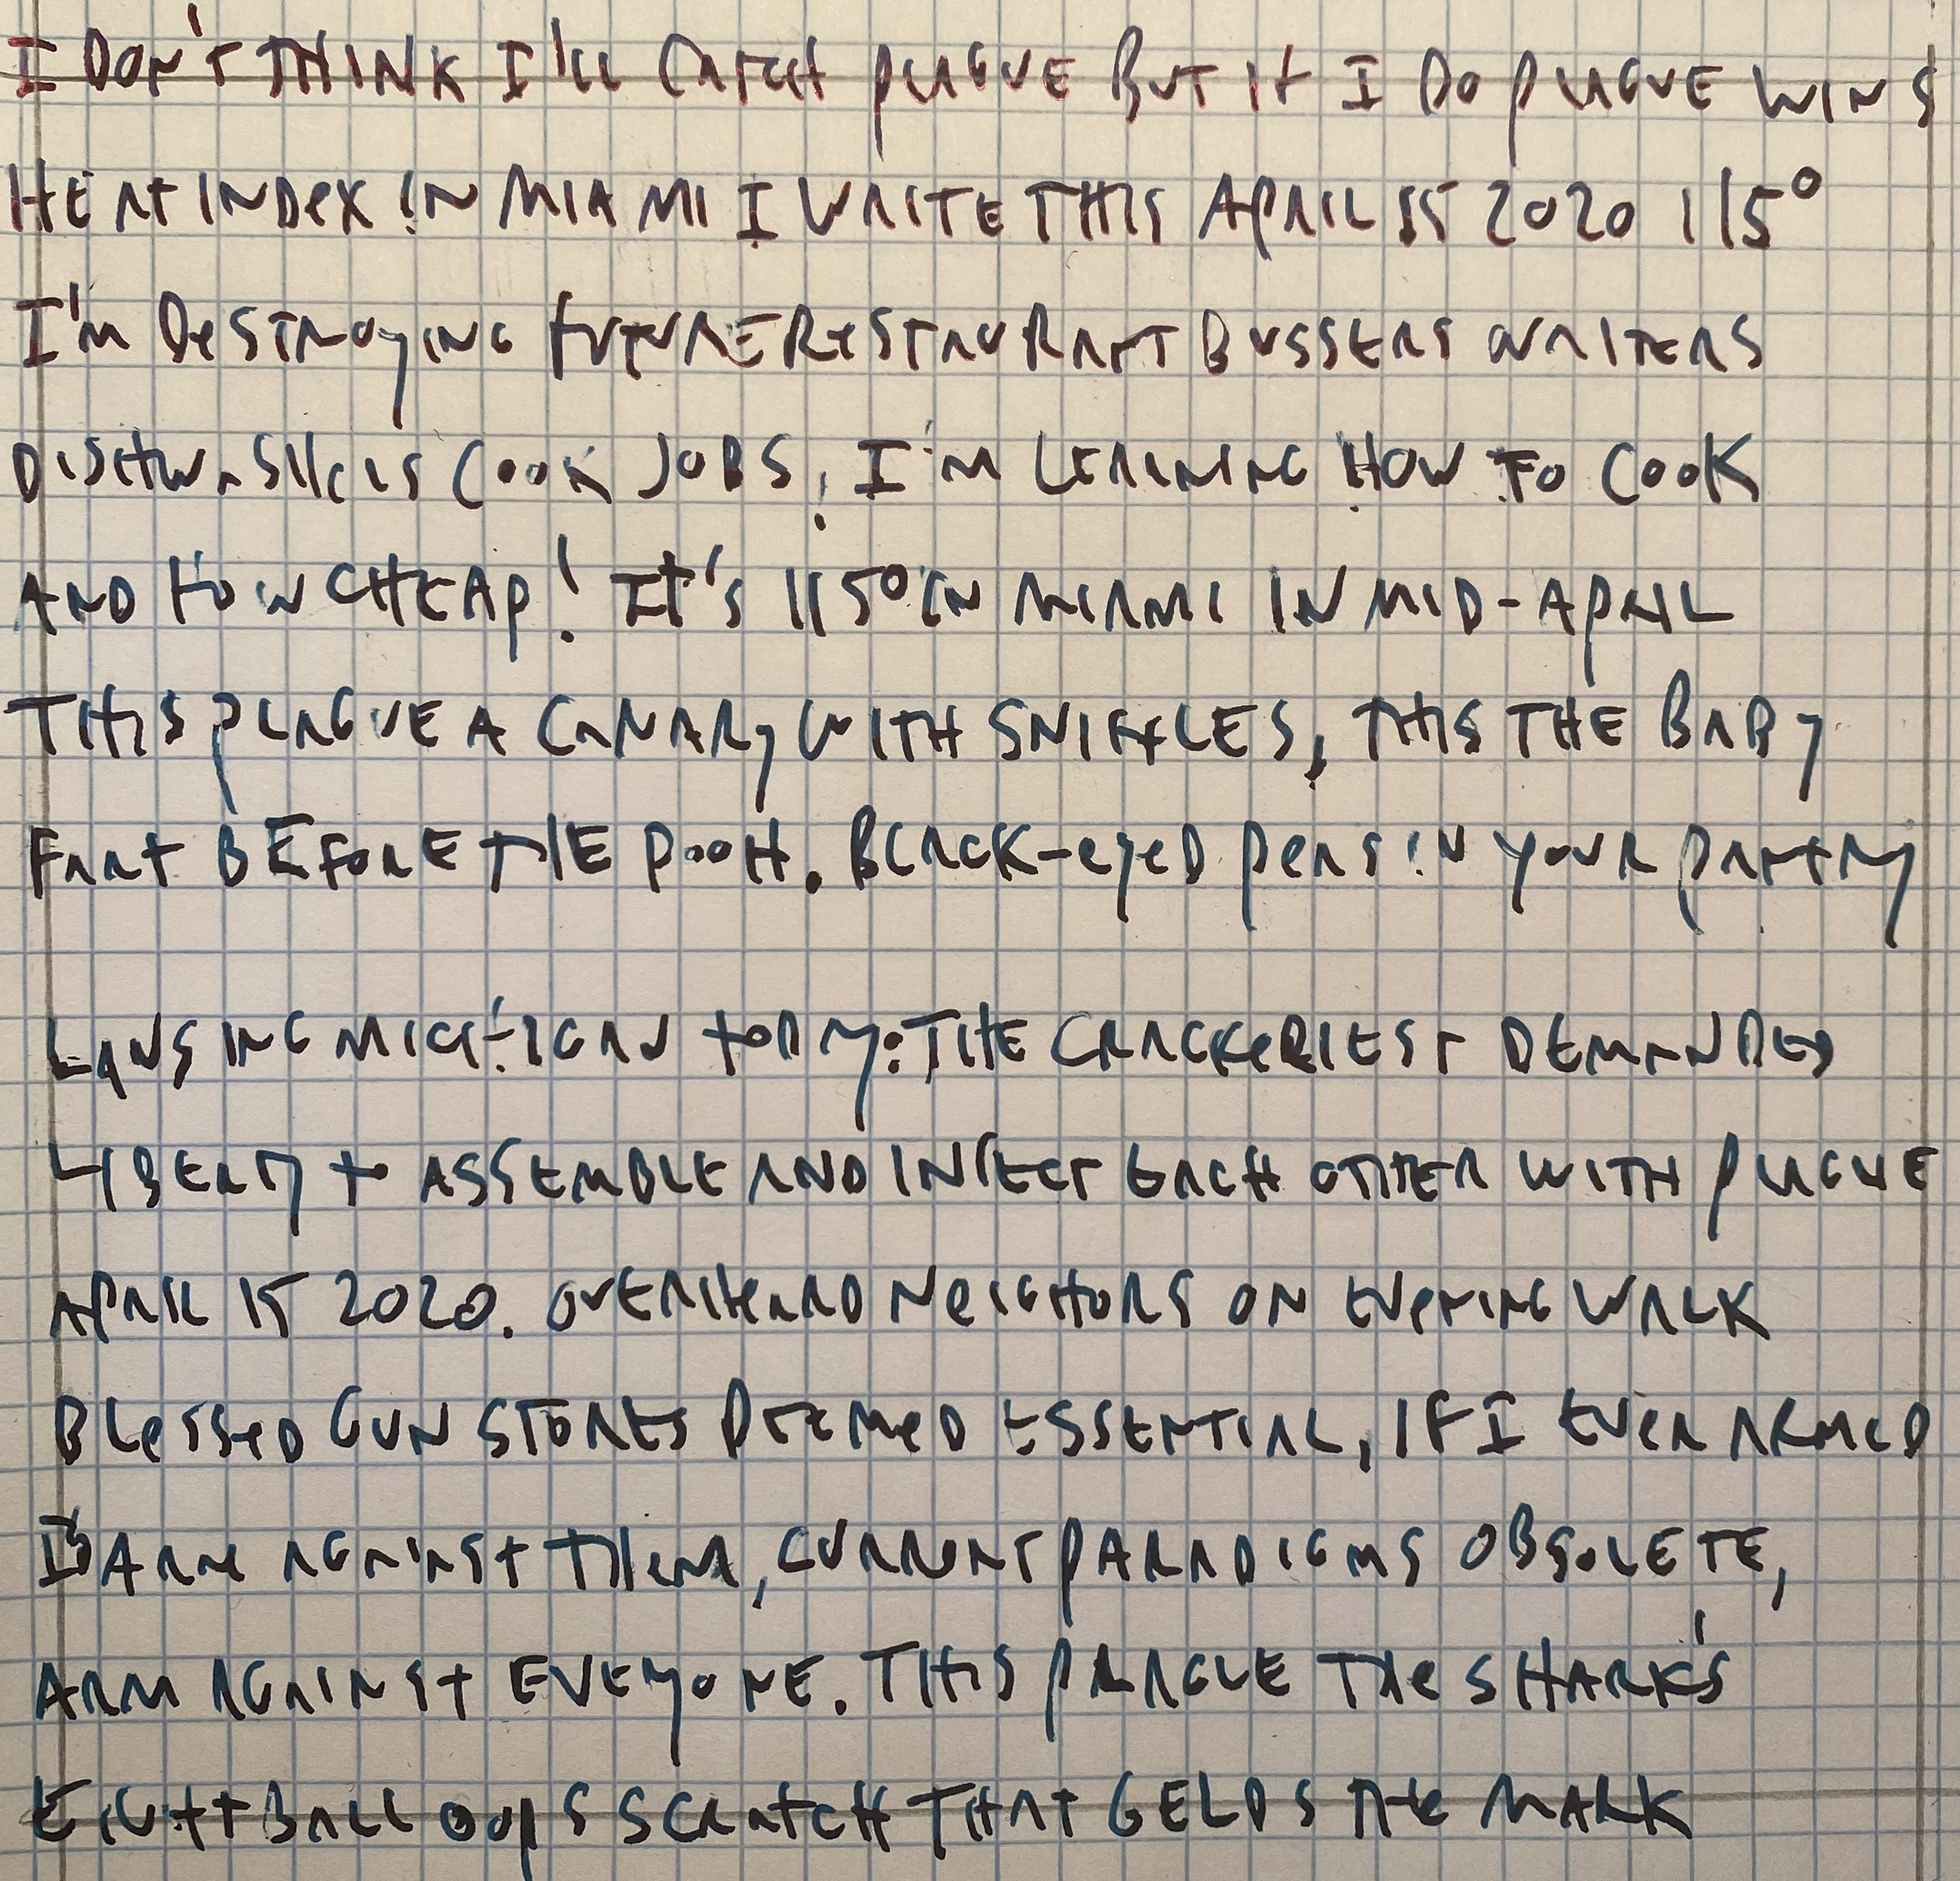 I DON'T THINK I'LL CATCH PLAGUE BUT IF I DO PLAGUE WINS
HEAT INDEX IN MIAMI I WRITE THIS APRIL 15 2020 115°
I'M DESTROYING FUTURE RESTAURANT BUSSERS WRITERS
DISHWASHERS COOK JOBS, I'M LEARNING HOW TO COOK
AND HOW CHEAP! IT'S 115° IN MIAMI IN MID-APRIL
THIS PLAGUE A CANARY WITH SNIFFLES, THIS THE BABY
FART BEFORE THE POOH. BLACK-EYED PEAS IN YOUR PANTRY

LANSING MICHIGAN TODAY: THE CRACKERIEST DEMANDED
LIBERTY TO ASSEMBLE AND INFECT EACH OTHER WITH PLAGUE
APRIL 15 2020. OVERHEARD NEIGHBORS ON EVENING WALK
BLESSED GUN STORES DEEMED ESSENTIAL, IF I EVER ARMED
I'D ARM AGAINST THEM, CURRENT PARADIGMS OBSOLETE,
ARM AGAINST EVERYONE. THIS PLAGUE THE SHARK'S
EIGHTBALL OOPS SCRATCH THAT GELDS THE MARK